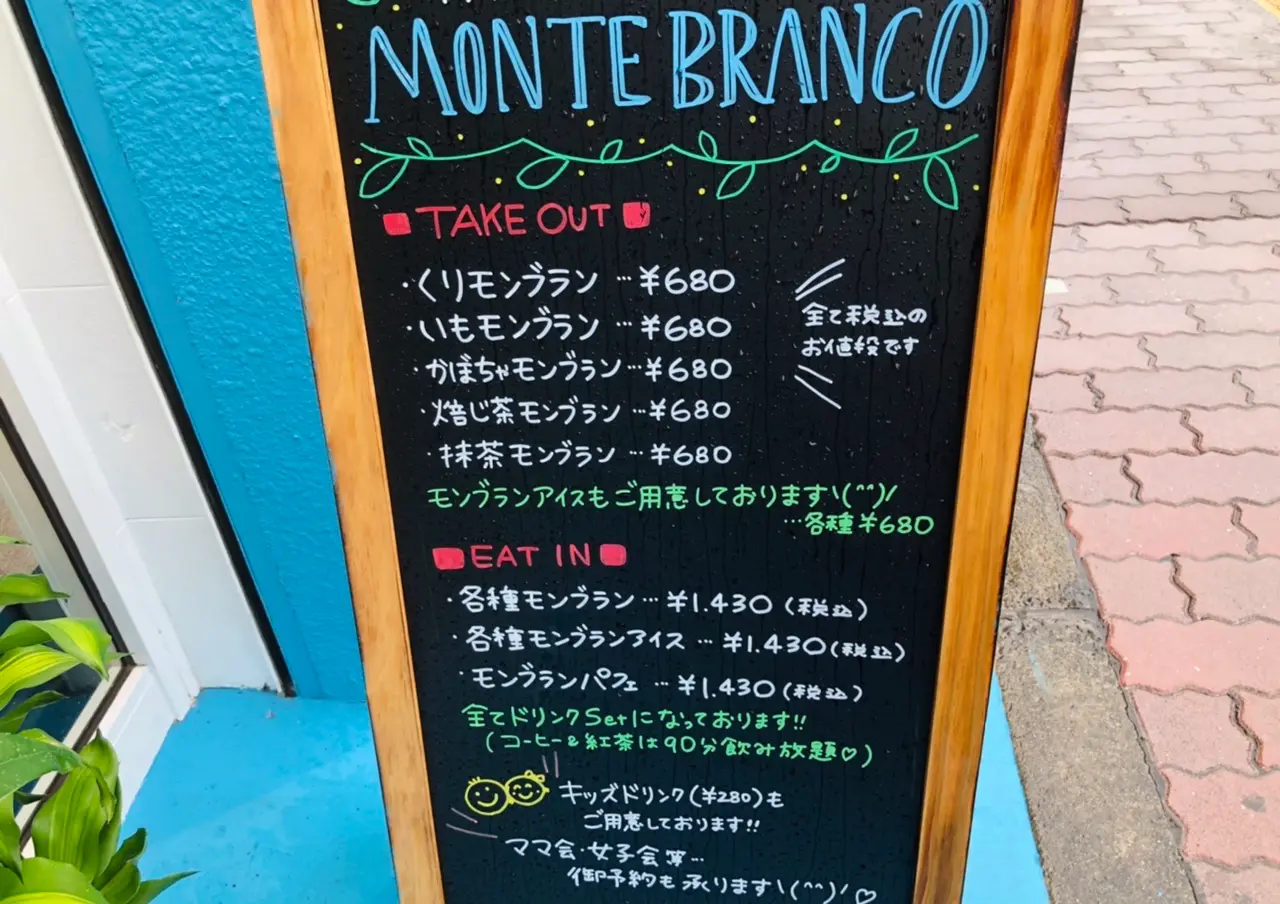 MONTE BRANCO
TAKE OUT
・くりモンブラン …¥680
・いもモンブラン …¥680
・かぼちゃモンブラン…¥680
・焙じ茶モンブラン…¥680
・抹茶モンブラン…¥680
全て税込の
お値段です
モンブランアイスもご用意しております\(^^)/
…各種¥680
EAT IN
・各種モンブラン…¥1.430(税込)
・各種モンブランアイス…¥1.430(税込)
・モンブランパフェ…¥1.430(税込)
全てドリンクSetになっております!!
(コーヒー&紅茶は90分飲み放題♡)
キッズドリンク(¥280)も
ご用意しております!!
ママ会・女子会等…
御予約も承ります\(^^)/♡